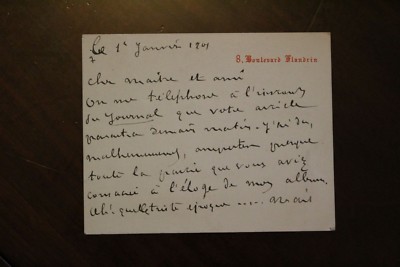 Le 1r Janvier 1901
8, Boulevard Flandrin
Cher maître et ami
On me téléphone à l'instant
du Journal que votre article
paraîtra demain matin. J'ai dû,
malheureusement, amputer presque
toute la partie que vous aviez
consacré à l'éloge de mon album.
Ah! quelle triste époque .... Mais